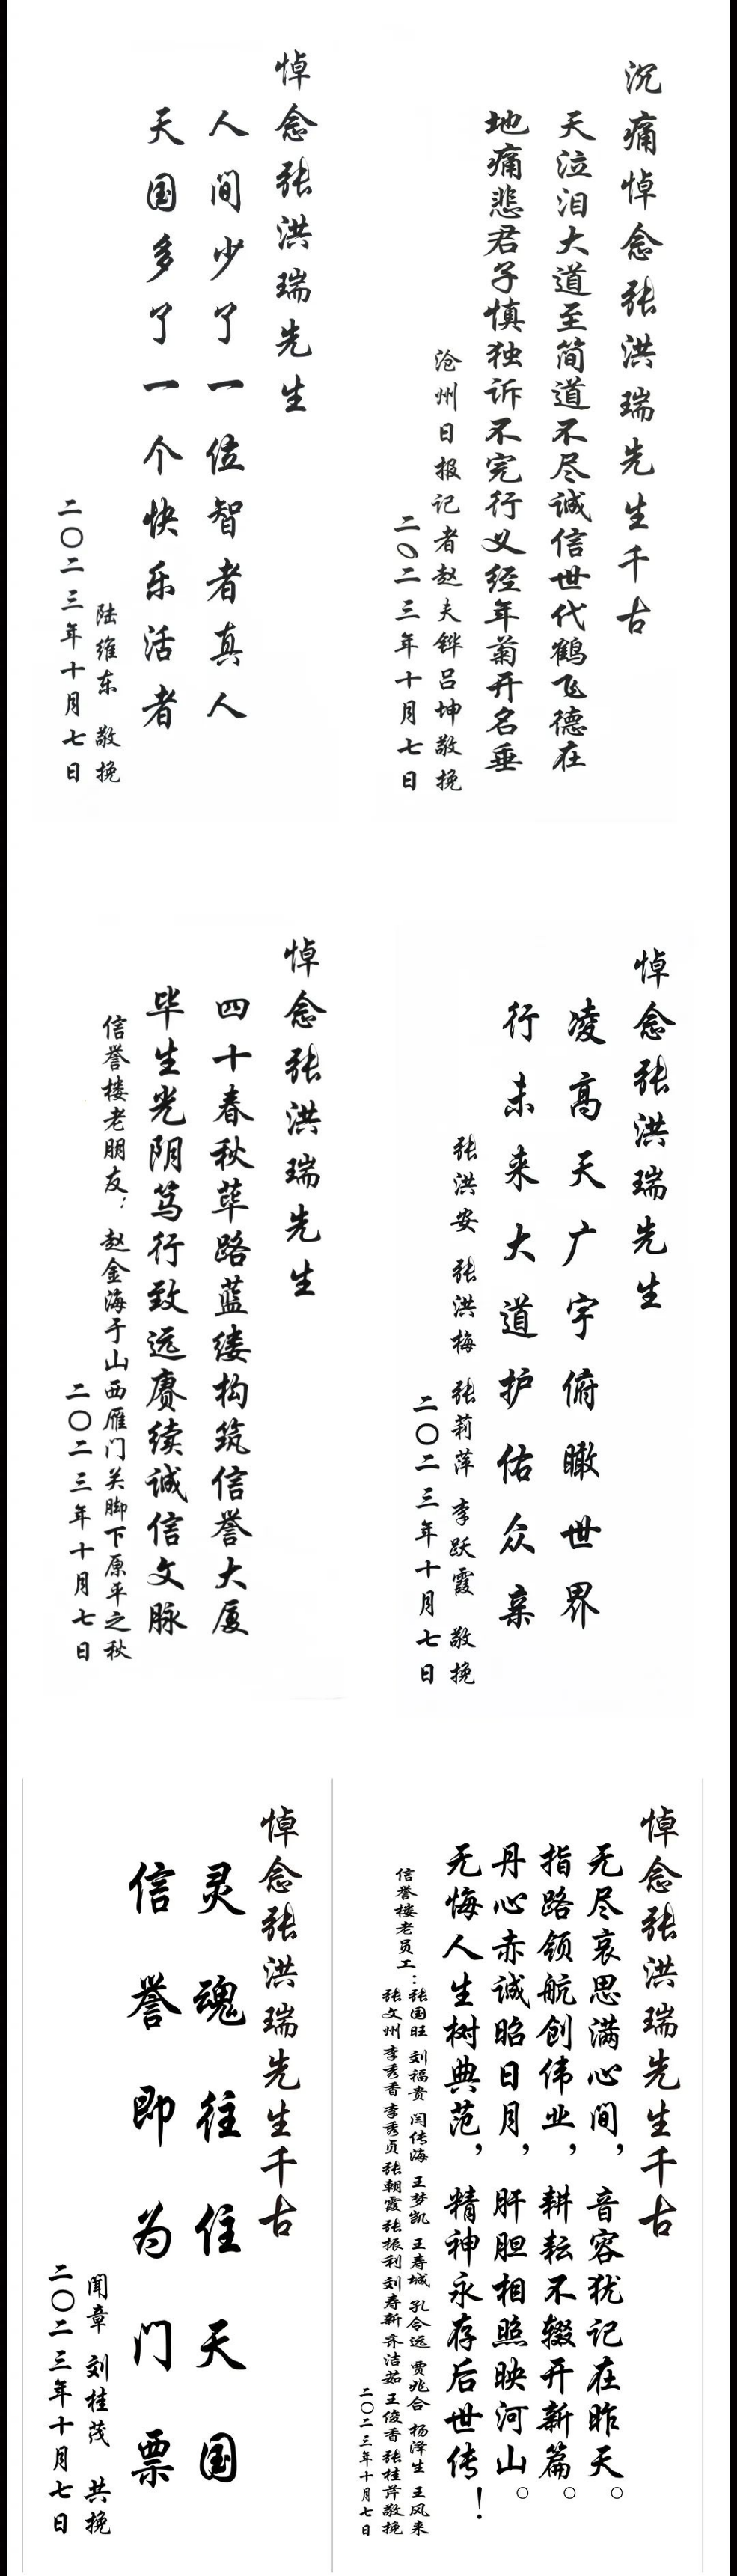 沉痛悼念张洪瑞先生千古
天泣泪大道至简道不尽诚信世代鹤飞德在
地痛悲君子慎独诉不完行义经年菊开名垂
沧州日报记者赵夫铧吕坤敬挽
二〇二三年十月七日
悼念张洪瑞先生
人间少了一位智者真人
天国多了一个快乐活者
陆维东 敬挽
二〇二三年十月七日
悼念张洪瑞先生
凌高天广宇俯瞰世界
行未来大道护佑众亲
张洪安 张洪梅 张莉萍 李跃霞 敬挽
二〇二三年十月七日
悼念张洪瑞先生
四十春秋荜路蓝缕构筑信誉大厦
毕生光阴笃行致远赓续诚信文脉
信誉楼老朋友：赵金海于山西雁门关脚下原平之秋
二〇二三年十月七日
悼念张洪瑞先生千古
无尽哀思满心间，音容犹记在昨天。
指路领航创伟业，耕耘不辍开新篇。
丹心赤诚昭日月，肝胆相照映河山。
无悔人生树典范，精神永存后世传！
信誉楼老员工：张国旺 刘福贵 闫传海 王梦凯 王寿城 孔令远 贾兆合 杨泽生 王风来
张文州 李秀香 李秀贞 张朝霞 张振利 刘寿新 齐洁茹 王俊香 张桂芹敬挽
二〇二三年十月七日
悼念张洪瑞先生千古
灵魂往住天国
信誉即为门票
闻章 刘桂茂 共挽
二〇二三年十月七日